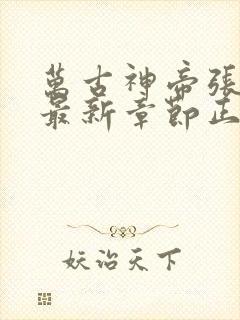 萬古神帝張
最新章節正
妖治天下